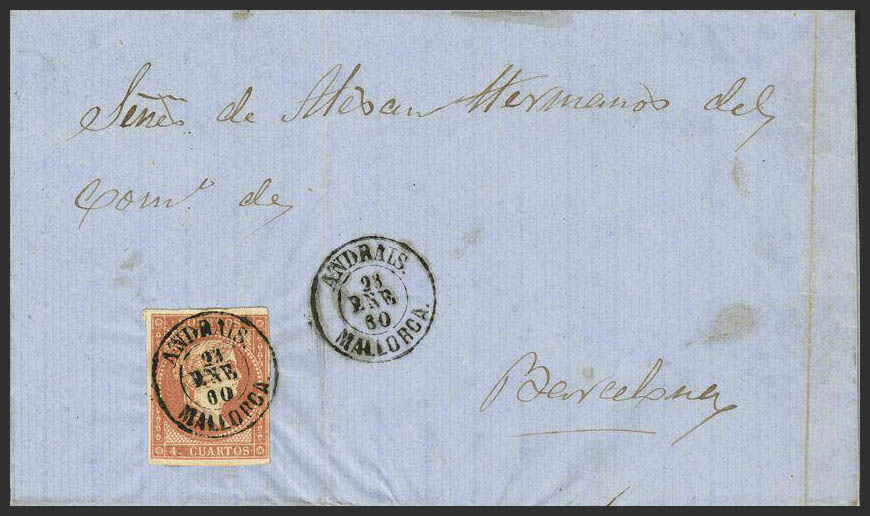 Señs de Alesan Hermanos del
Comº de
ANDRAIS.
23
ENE
60
MALLORCA.
ANDRAIS.
ENE
60
MALLORCA.
4. CUARTOS
Barcelona